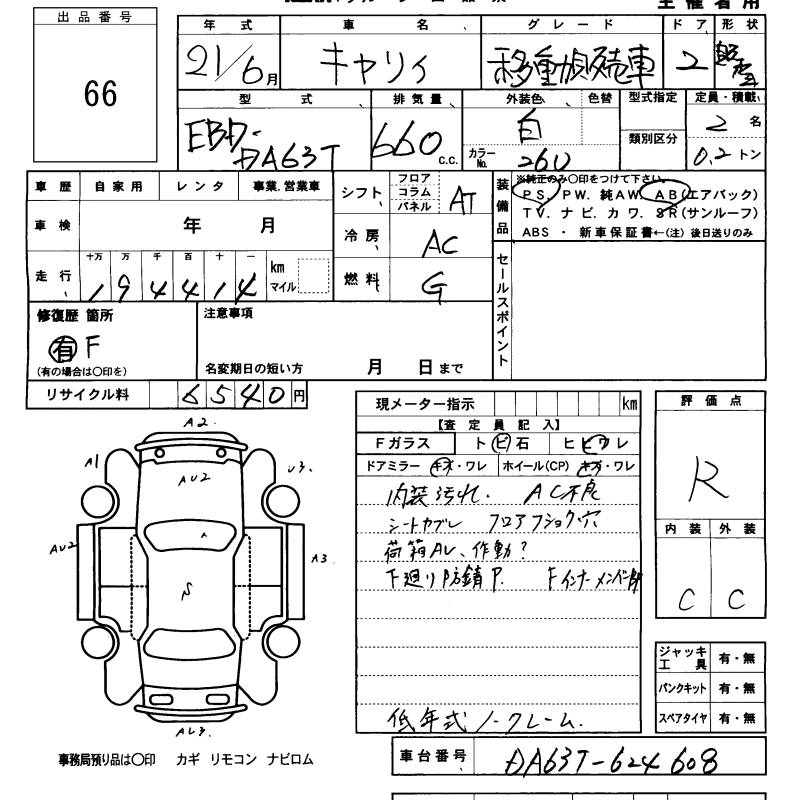 主催者用
出品番号
66
年式 車名 グレード ドア 形状
21/6月 キャリィ 移動販売車 2
型式 排気量 外装色 色替 型式指定 定員・積載
EBD-DA63T 660 c.c. 白 類別区分 2名
カラーNo. 26U 0.2トン
車歴 自家用 レンタ 事業.営業車
車検 年 月
走行 十万 万 千 百 十 一 km マイル
194414
シフト フロア コラム パネル AT
冷房 AC
燃料 G
装備品
※純正のみ〇印をつけて下さい。
PS. PW. 純AW. AB(エアバック)
TV. ナビ. カワ. SR(サンルーフ)
ABS ・ 新車保証書←(注) 後日送りのみ
セールスポイント
修復歴 箇所
有 F
(有の場合は〇印を)
注意事項
名変期日の短い方 月 日まで
リサイクル料 6540円
現メーター指示 km
【査定員記入】
Fガラス トビ石 ヒビワレ
ドアミラー キズ・ワレ ホイール(CP) キズ・ワレ
内装汚れ. AC不良
シートヤブレ フロアフショク・穴
荷箱AL、作動?
F廻り防錆P. Fインナーメンバー部
低年式ノークレーム.
評価点
R
内装 外装
C C
ジャッキ工具 有・無
パンクキット 有・無
スペアタイヤ 有・無
A2.
A1
AU2
U3.
AU2
A3
S
AU3.
事務局預り品は〇印 カギ リモコン ナビロム
車台番号 DA63T-624608